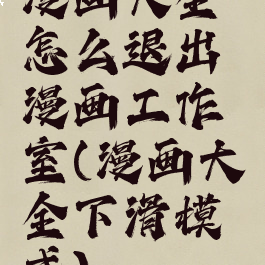 漫画大全
怎么退出
漫画工作
室(漫画大
全下滑模
式)